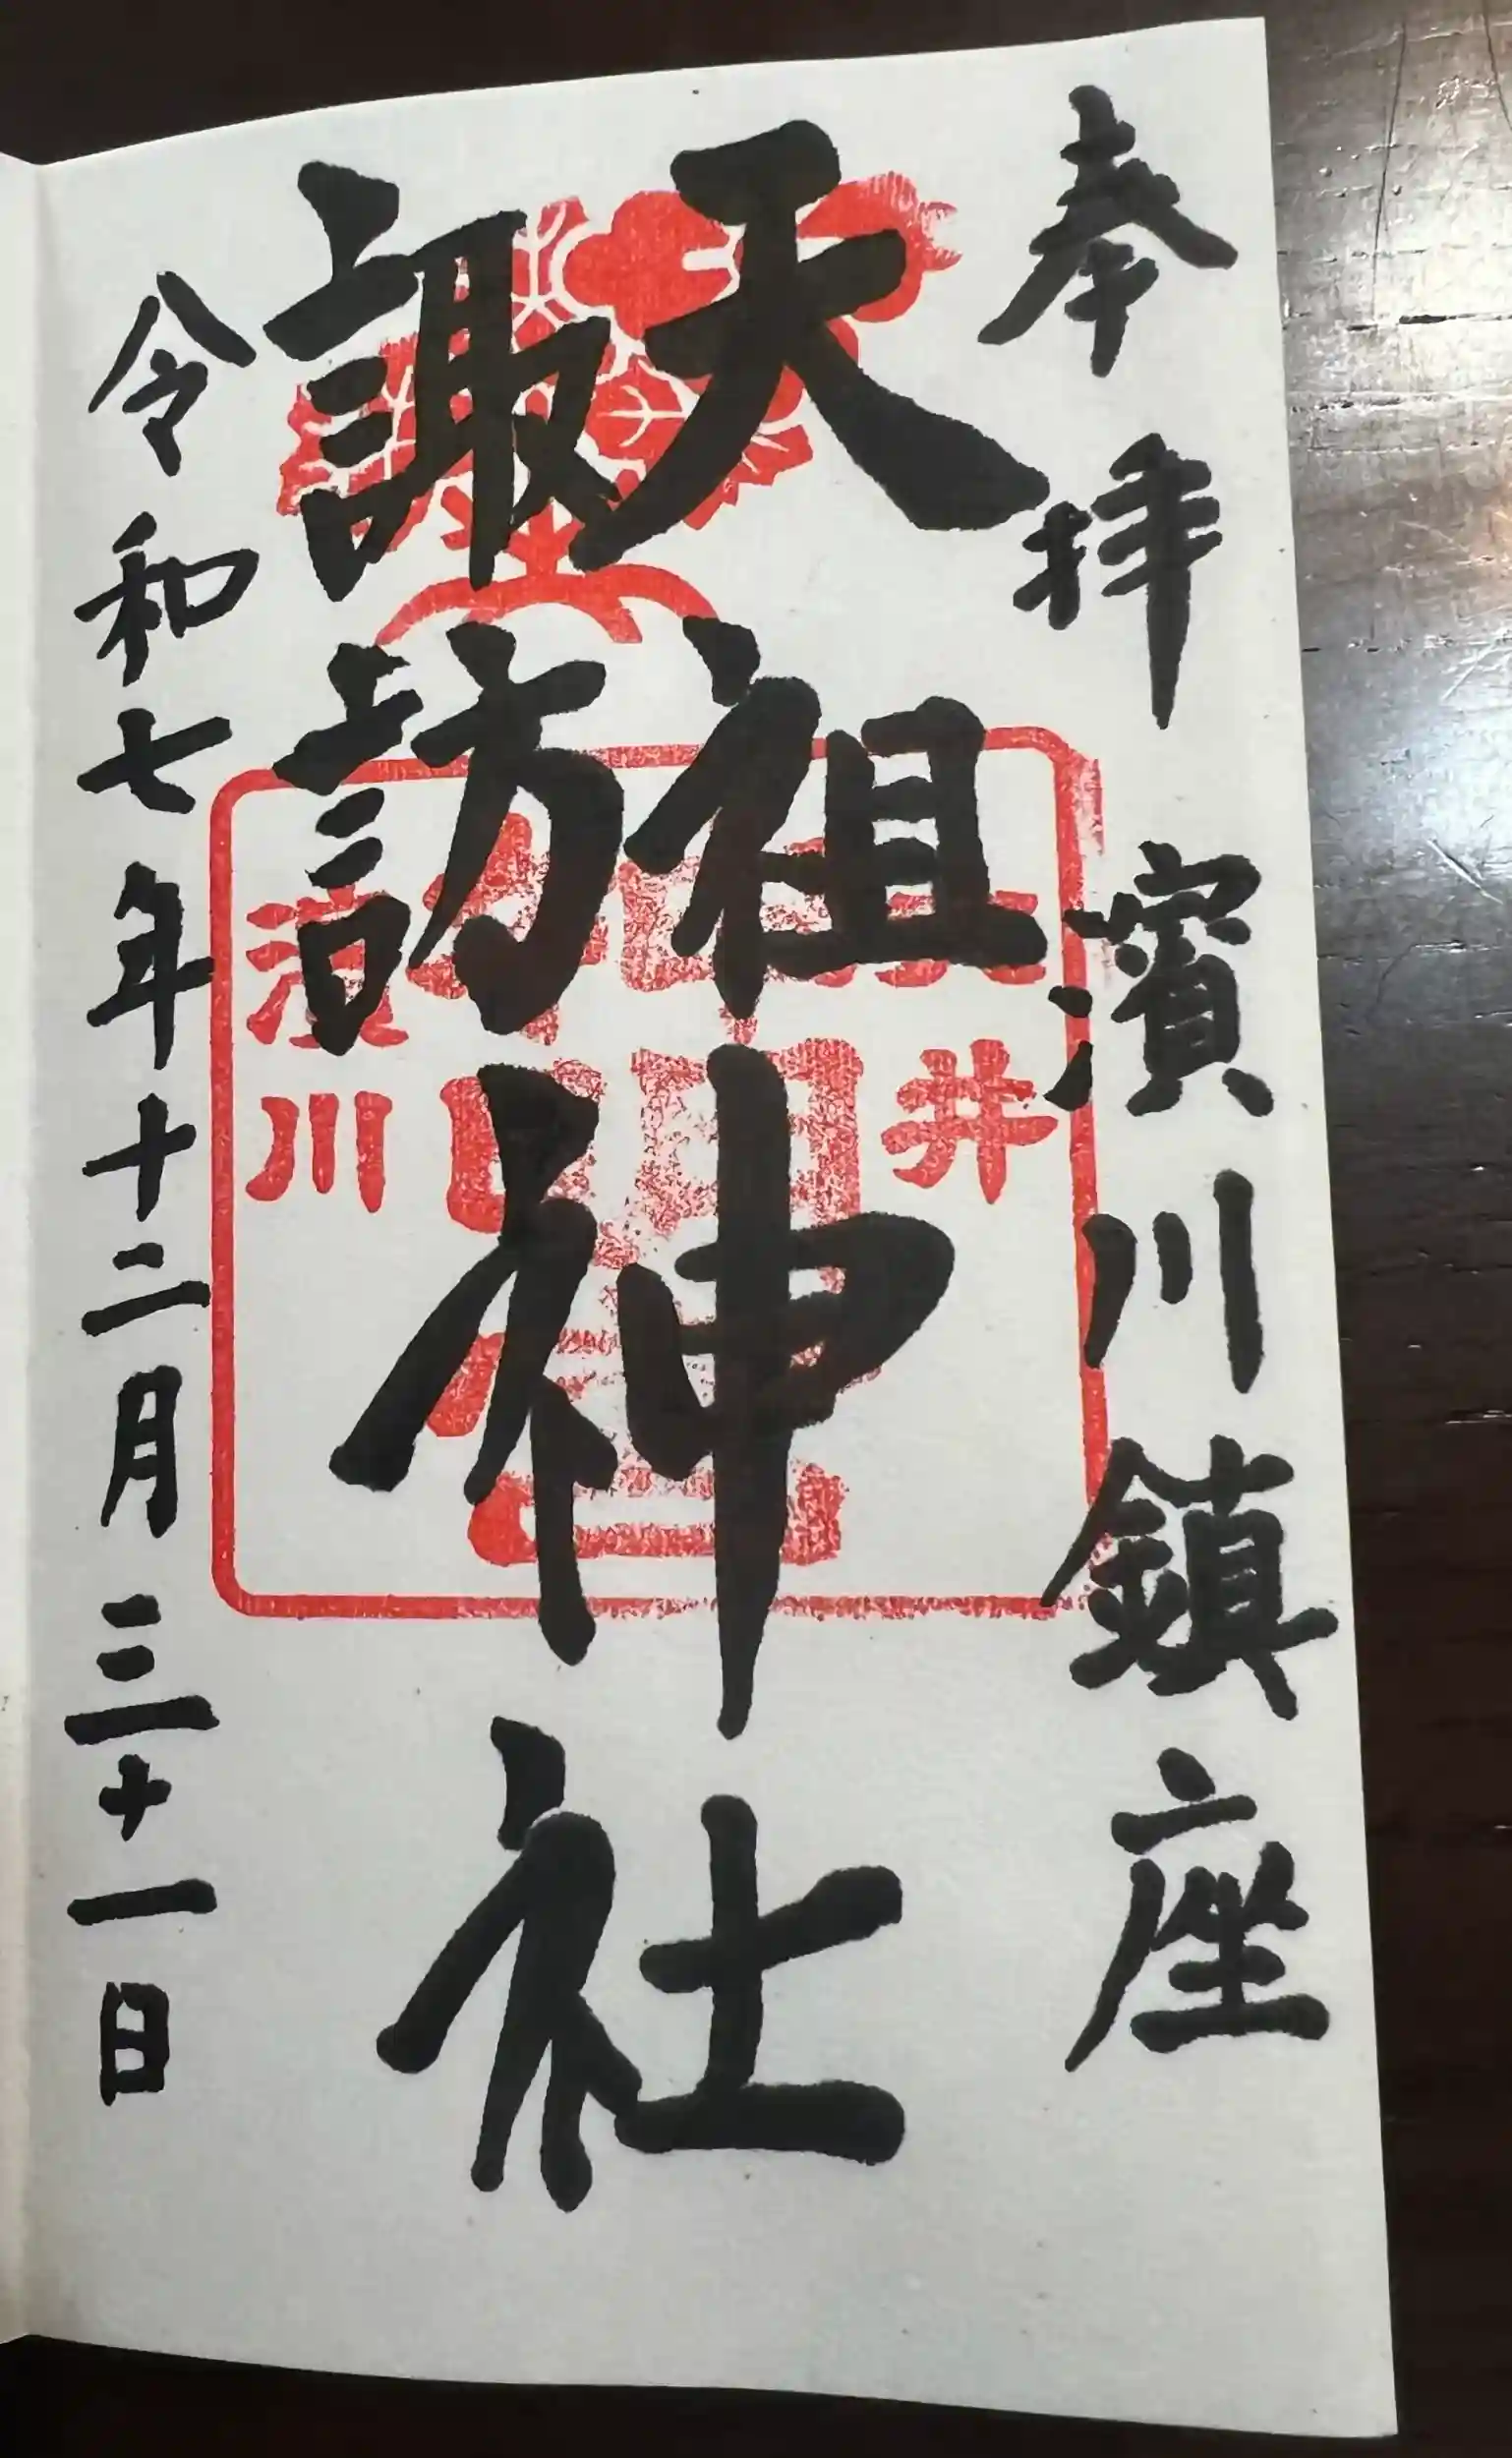 奉拝 濱川鎮座
天祖
諏訪
神社
令和七年十二月三十一日
井
濱川